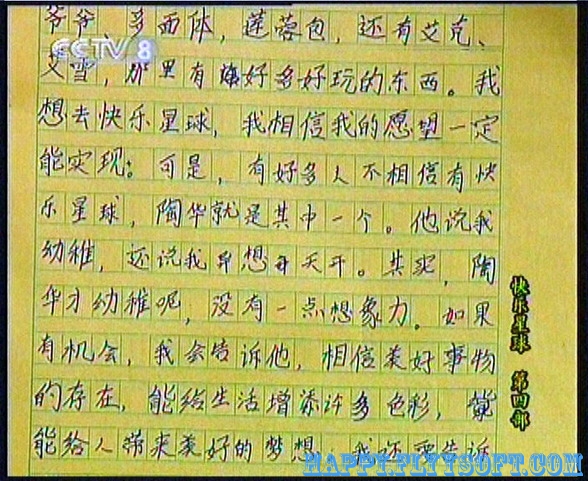 爷爷、多面体,莲蓉包,还有艾克、
CCTV 8
艾雪,那里有好多好玩的东西。我
想去快乐星球,我相信我的愿望一定
能实现。可是,有好多人不相信有快
乐星球,陶华就是其中一个。他说我
幼稚,还说我异想天开。其实,陶
华才幼稚呢,没有一点想象力。如果
有机会,我会告诉他,相信美好事物
的存在,能给生活增添许多色彩,
能给人带来美好的梦想。我还要告诉
快乐星球 第四部
HAPPY.FLYYSOFT.COM